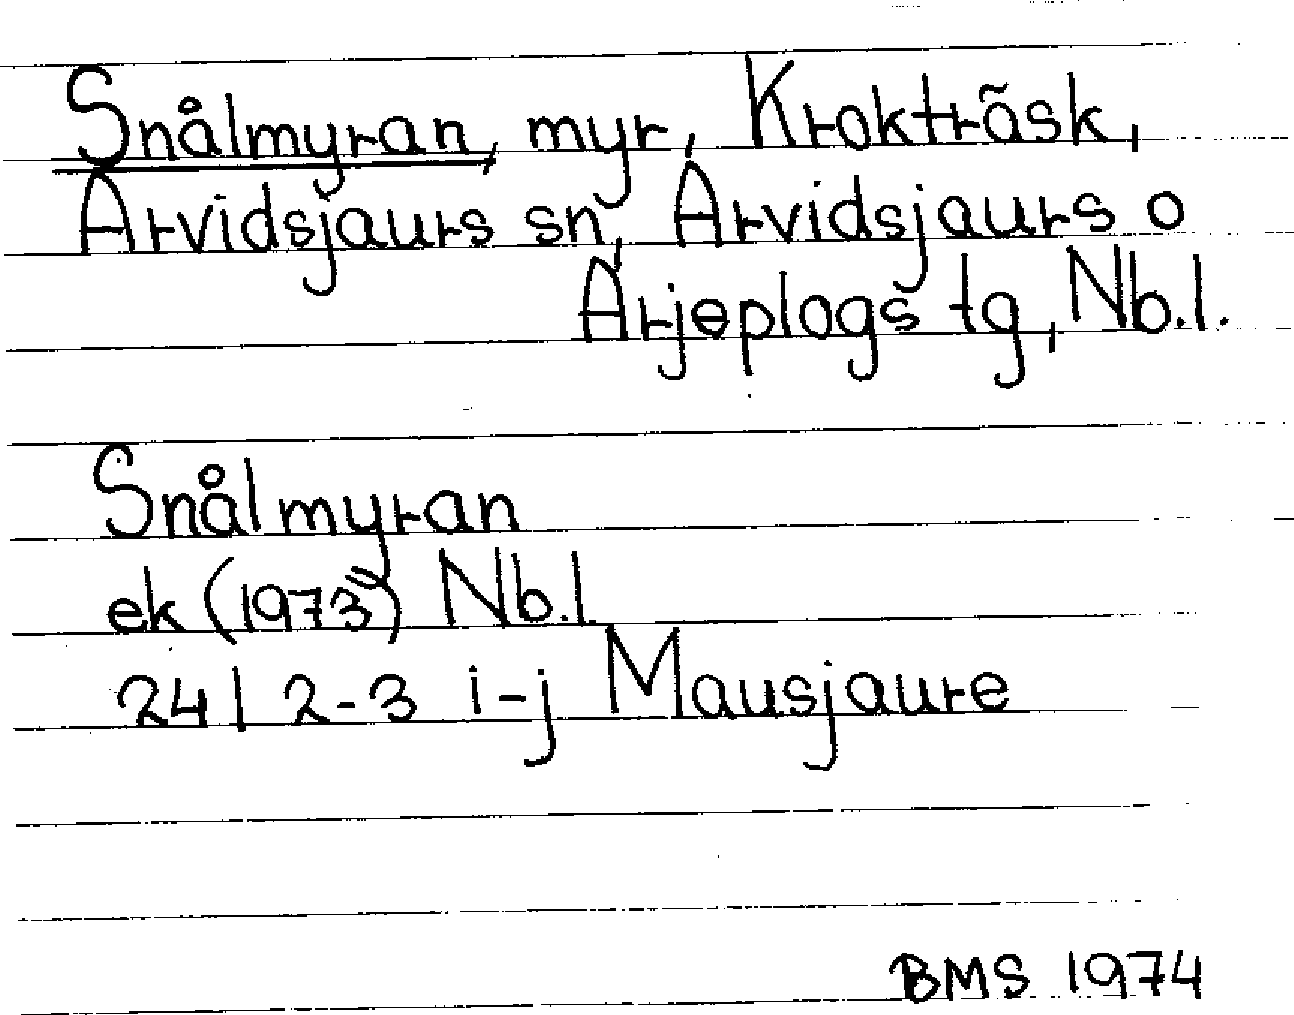 Snålmyran, myr, Krokträsk,
Arvidsjaurs sn, Arvidsjaurs o
Arjeplogs tg, Nb.l.
Snålmyran
ek (1973) Nb.l.
24 I 2-3 i-j Mausjaure
BMS 1974